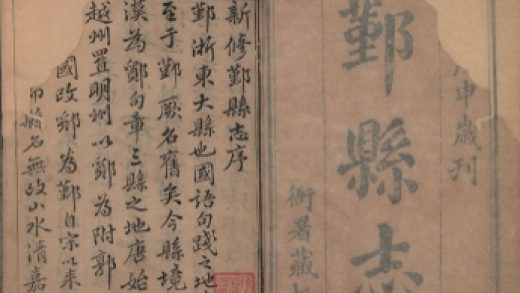 鄞縣志
申歲刊
衙署藏
新修鄞縣志序
鄞浙東大縣也國語句踐之地
至于鄞厥名舊矣今縣境
漢為鄮句章三縣之地唐始
越州置明州以鄮為附郭
國改鄮為鄞自宋以来
縣名無改山水清嘉